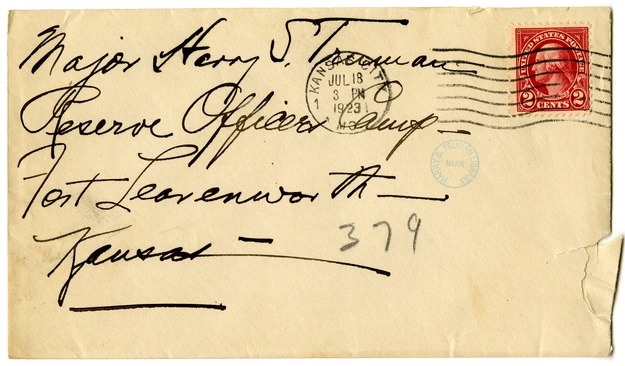 Major Harry S. Truman
Reserve Officers Camp —
Fort Leavenworth —
Kansas —
379
KANSAS CITY
JUL 18
3 PM
1923
MO.
1
UNITED STATES POSTAGE
2 CENTS 2